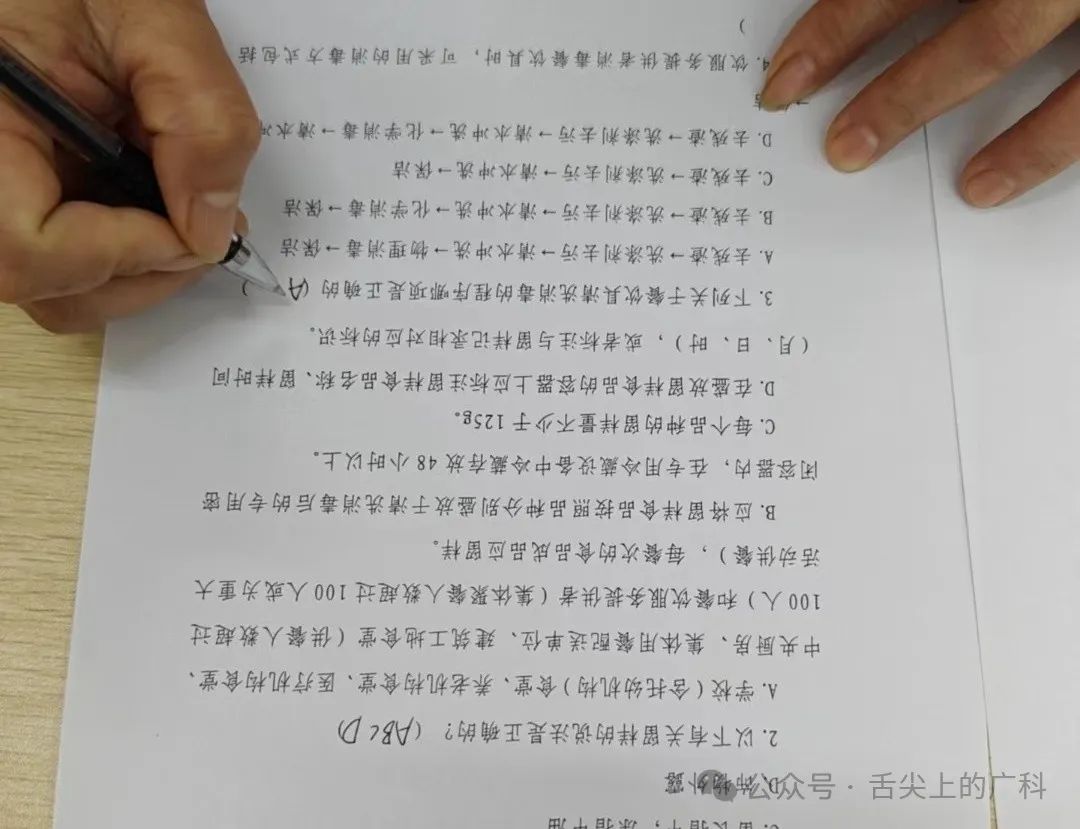 C. 留长指甲，涂指甲油
D. 饰物外露
2. 以下有关留样的说法是正确的？（ABCD）
A. 学校（含托幼机构）食堂、养老机构食堂、医疗机构食堂、
中央厨房、集体用餐配送单位、建筑工地食堂（供餐人数超过
100 人）和餐饮服务提供者（集体聚餐人数超过 100 人或为重大
活动供餐），每餐次的食品成品应留样。
B. 应将留样食品按照品种分别盛放于清洗消毒后的专用密
闭容器内，在专用冷藏设备中冷藏存放 48 小时以上。
C. 每个品种的留样量不少于 125g。
D. 在盛放留样食品的容器上应标注留样食品名称、留样时间
（月、日、时），或者标注与留样记录相对应的标识。
3. 下列关于餐饮具清洗消毒的程序哪项是正确的（A ）
A. 去残渣→洗涤剂去污→清水冲洗→物理消毒→保洁
B. 去残渣→洗涤剂去污→清水冲洗→化学消毒→保洁
C. 去残渣→洗涤剂去污→清水冲洗→保洁
D. 去残渣→洗涤剂去污→清水冲洗→化学消毒→清水冲
洁
4. 饮服务提供者消毒餐饮具时，可采用的消毒方式包括
）
公众号 · 舌尖上的广科